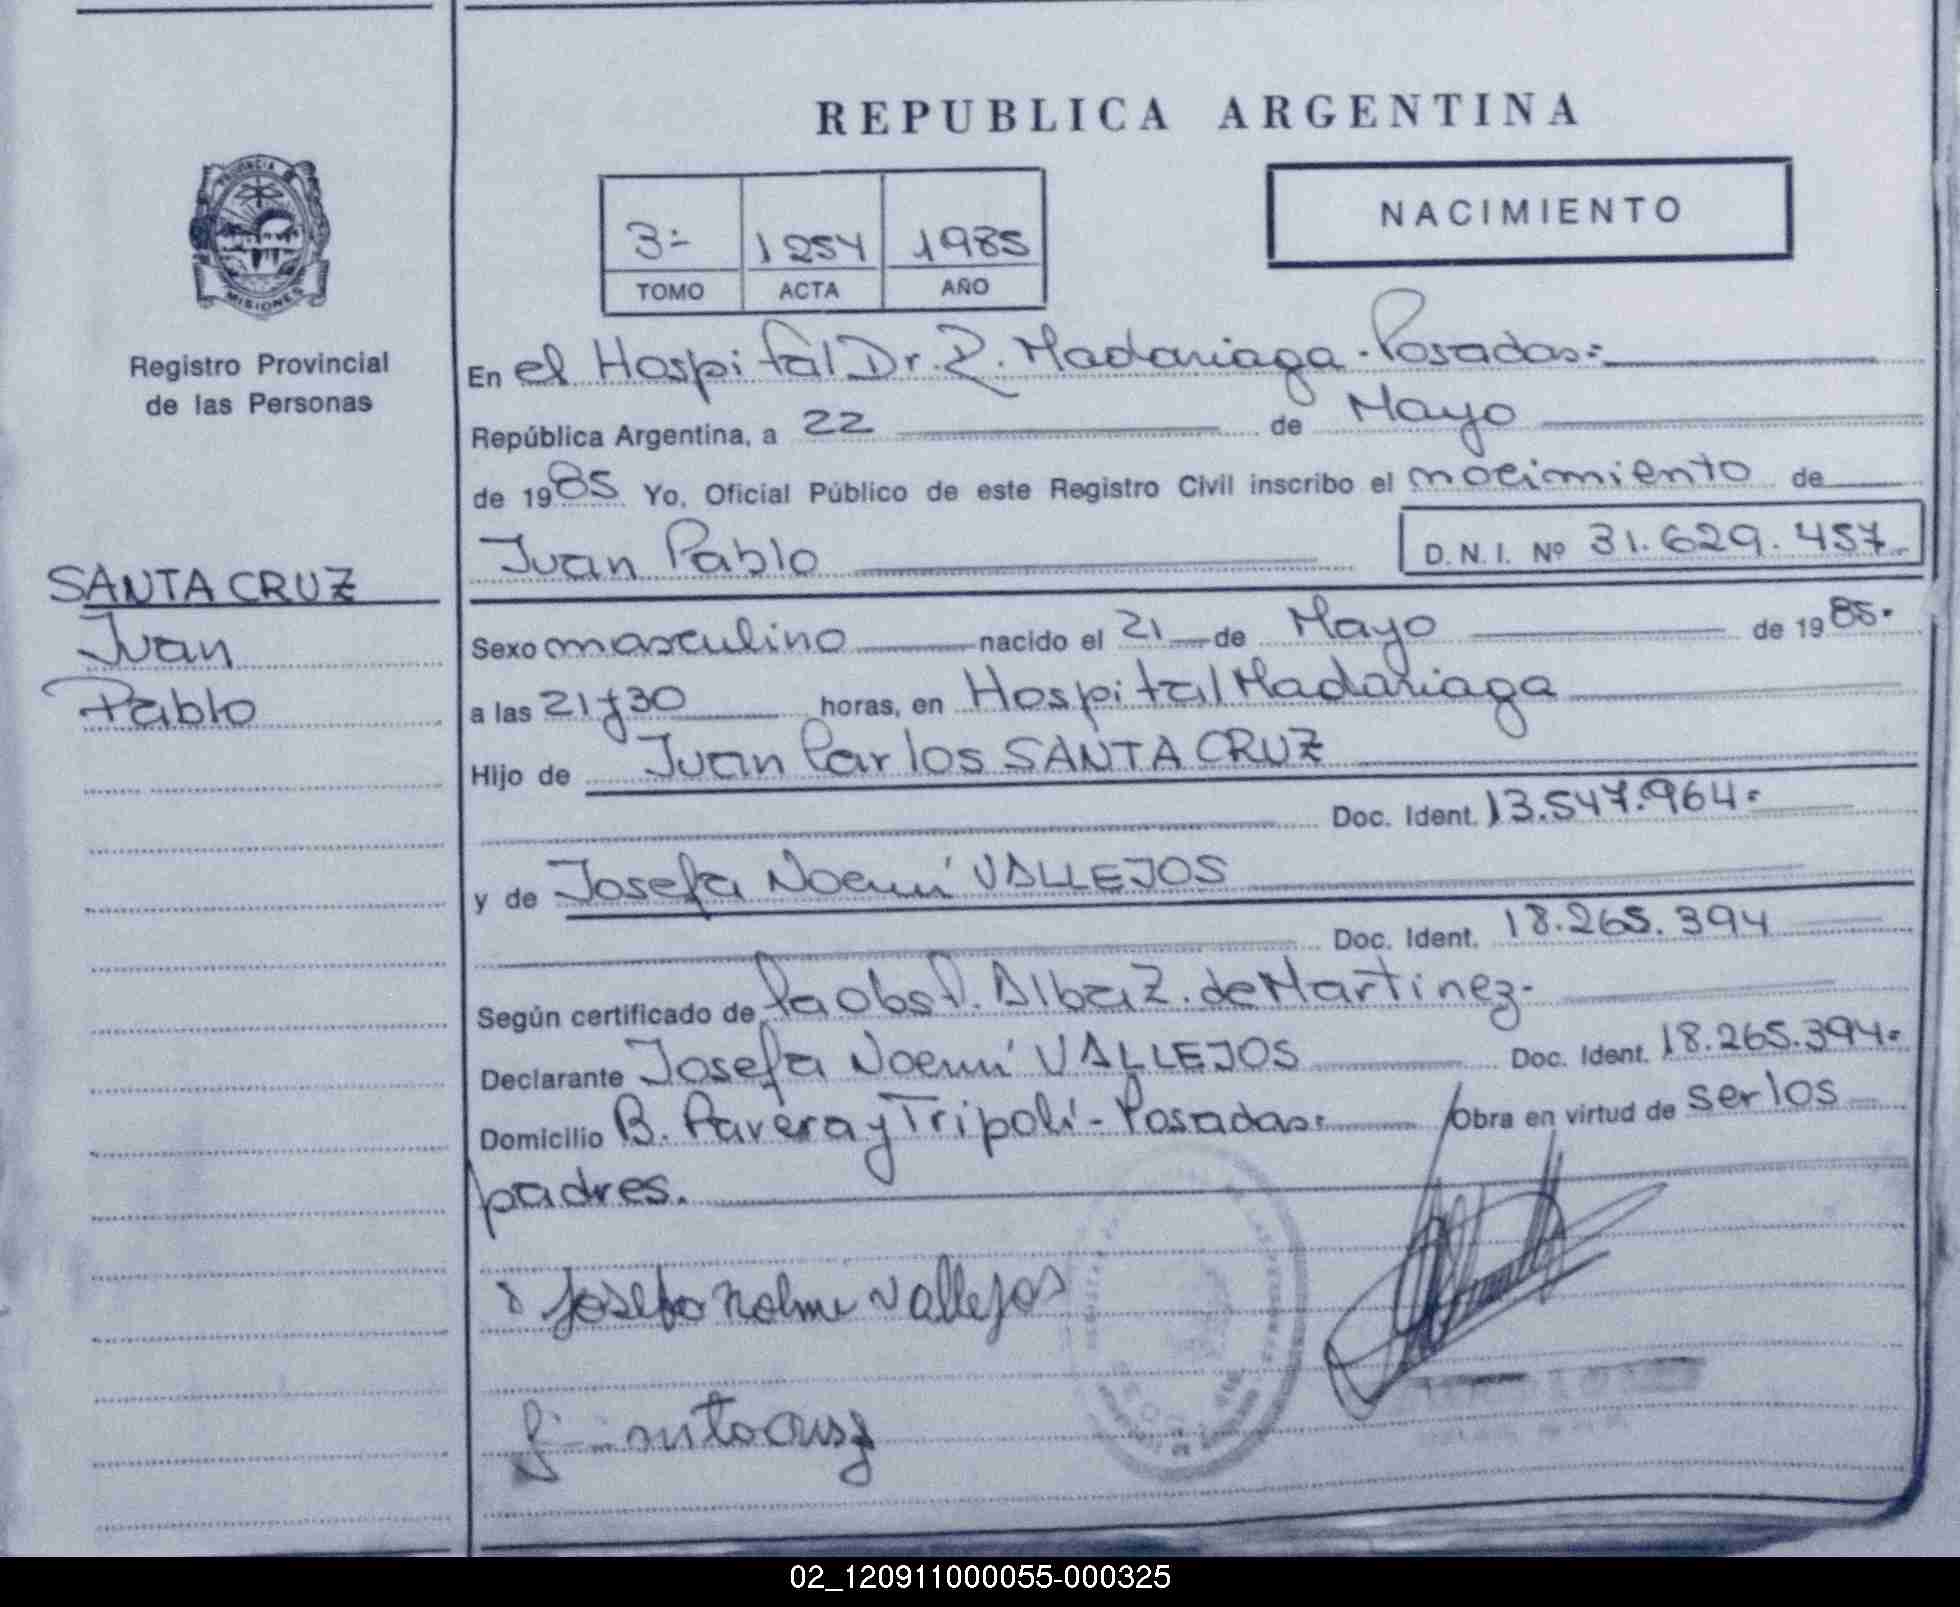 REPUBLICA ARGENTINA
PROVINCIA DE
MISIONES
Registro Provincial
de las Personas
SANTA CRUZ
Juan
Pablo
3- 1254 1985
TOMO ACTA AÑO
NACIMIENTO
En el Hospital Dr. R. Madariaga - Posadas=
República Argentina, a 22 de Mayo
de 1985 Yo, Oficial Público de este Registro Civil inscribo el nacimiento de
Juan Pablo D.N.I. Nº 31.629.457
Sexo masculino nacido el 21 de Mayo de 1985.
a las 21 y 30 horas, en Hospital Madariaga
Hijo de Juan Carlos SANTA CRUZ
Doc. Ident. 13.547.964=
y de Josefa Noemí VALLEJOS
Doc. Ident. 18.265.394
Según certificado de la obst. Alba Z. de Martinez-
Declarante Josefa Noemí VALLEJOS Doc. Ident. 18.265.394=
Domicilio B. Pavera y Tripolí - Posadas= Obra en virtud de ser los
padres.
Josefa Nohmi Vallejos
02_120911000055-000325